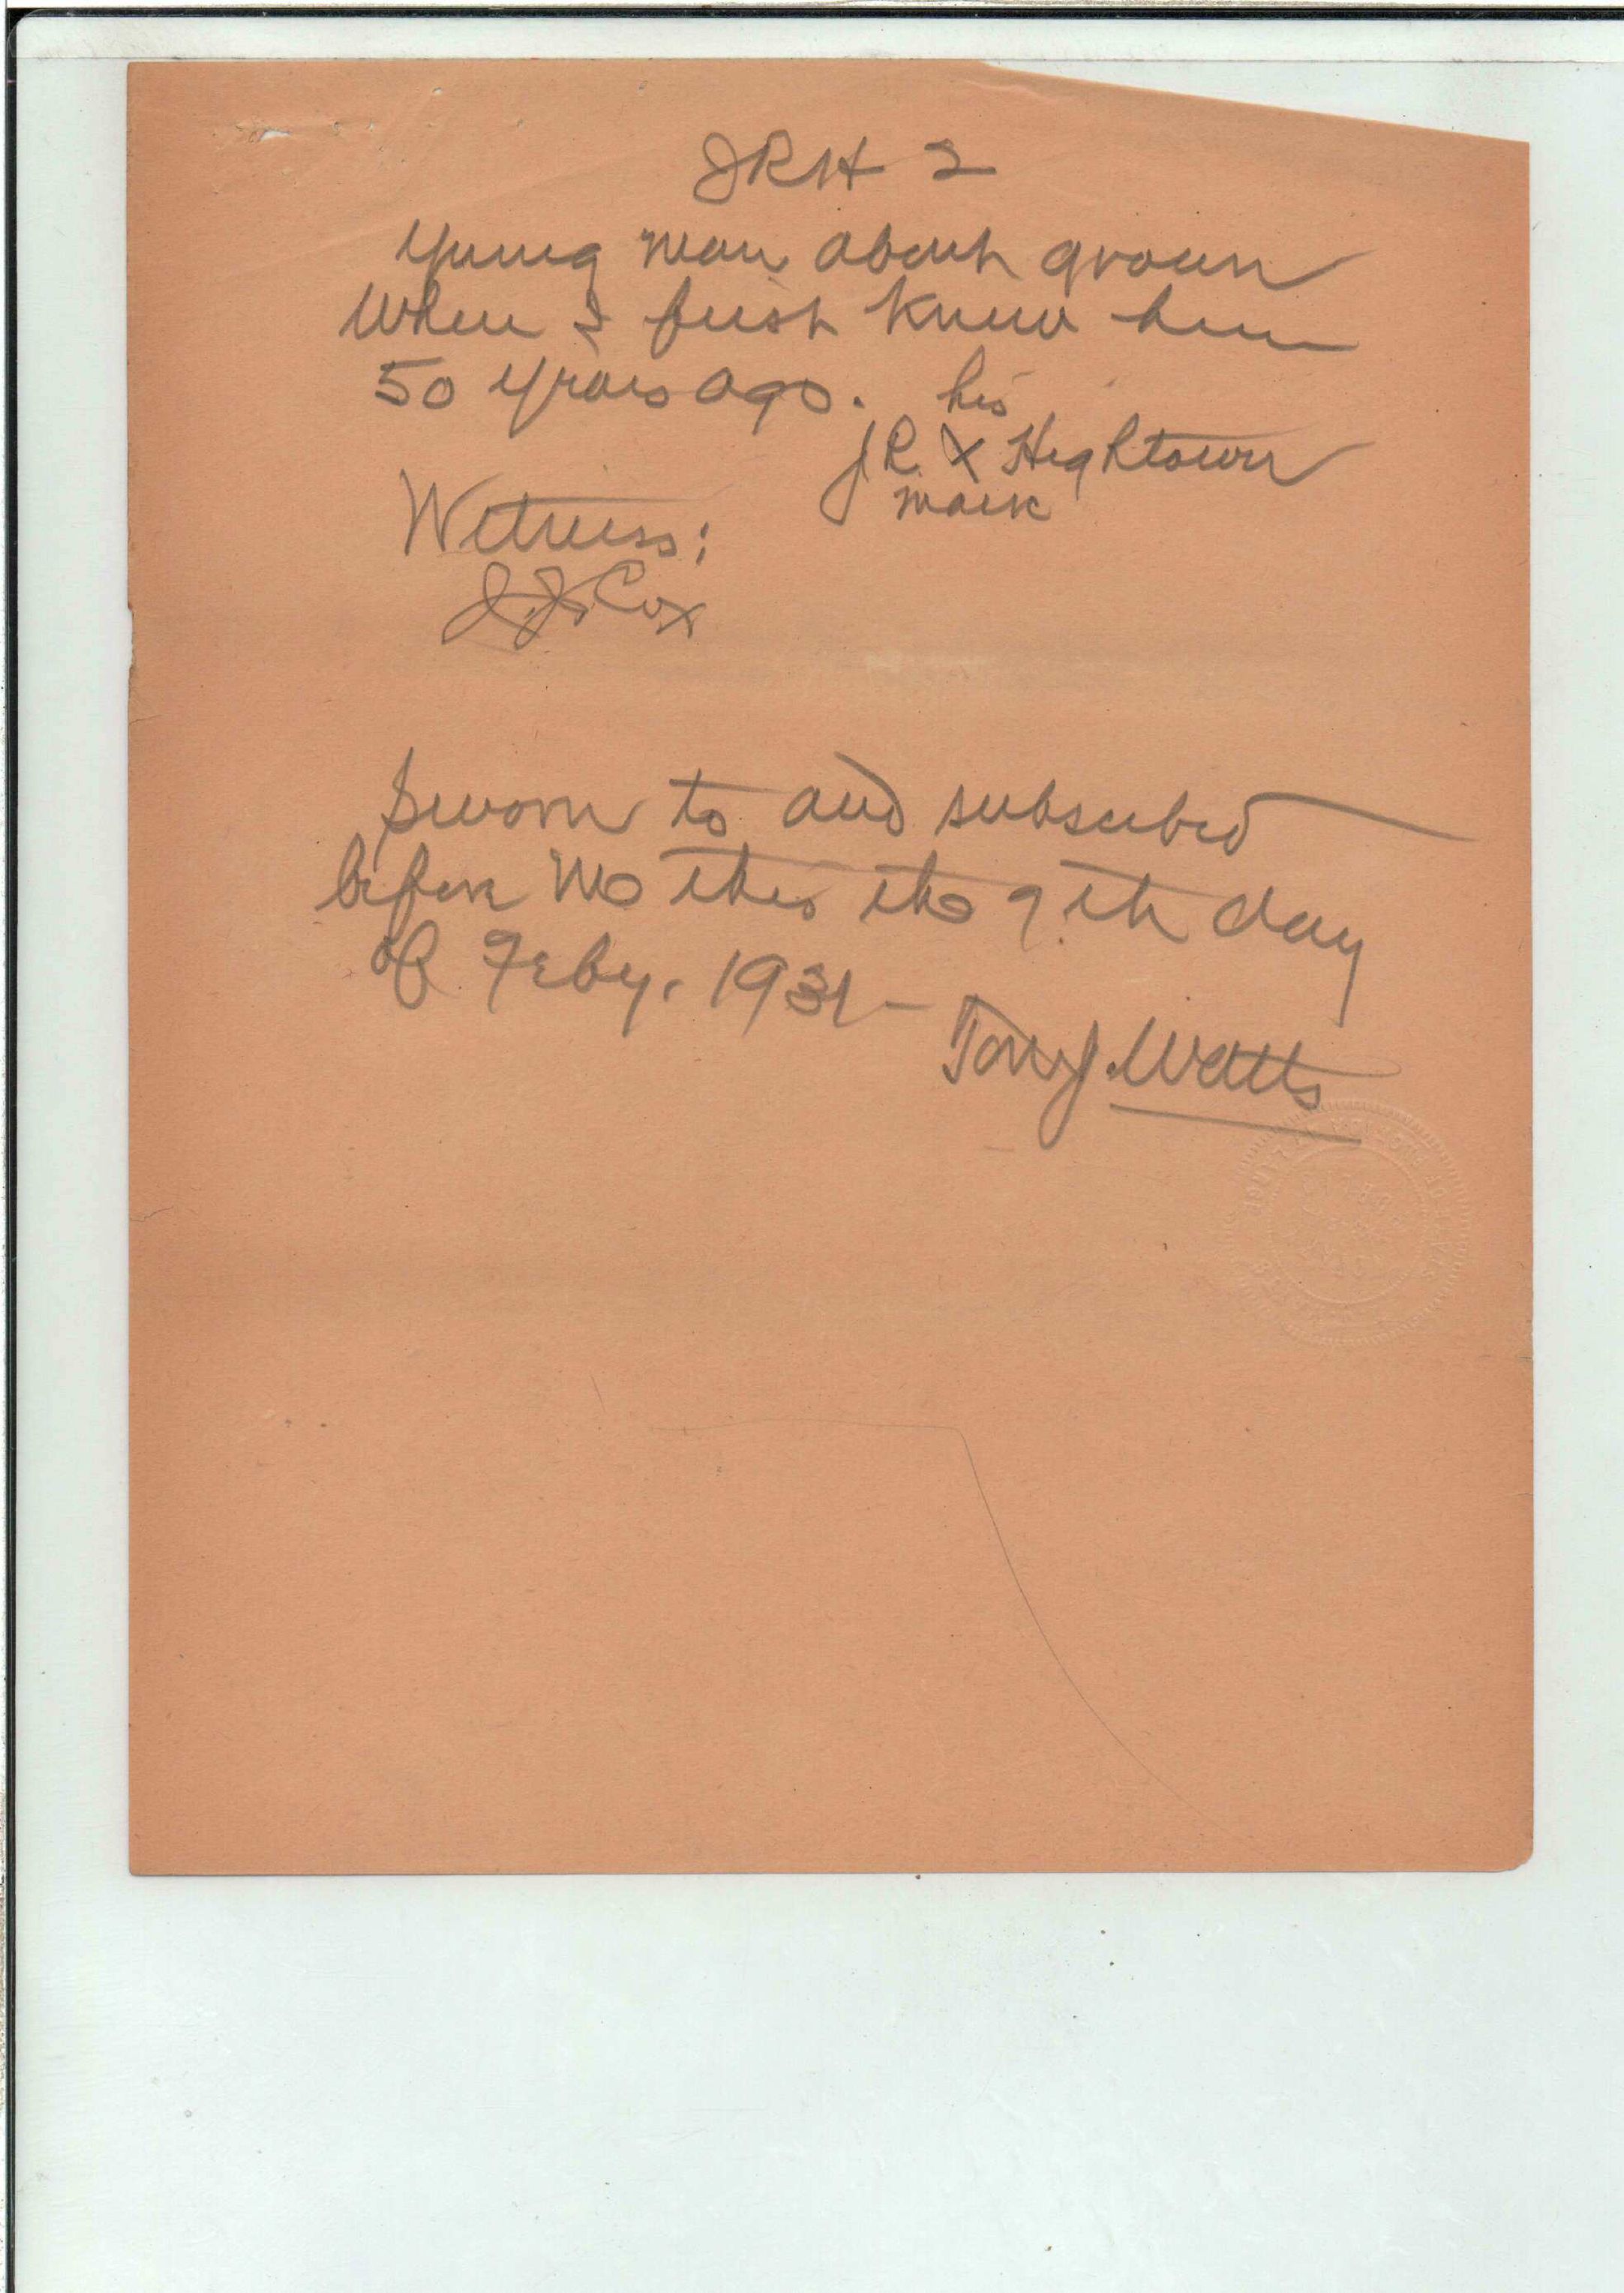 JRH 2
Young man about grown
When I first knew him
50 years ago.
his
J R. X Hightower
mark
Witness:
J. J. Cox
Sworn to and subscribed
before me this the 9th day
of Feby. 1931-
Watts